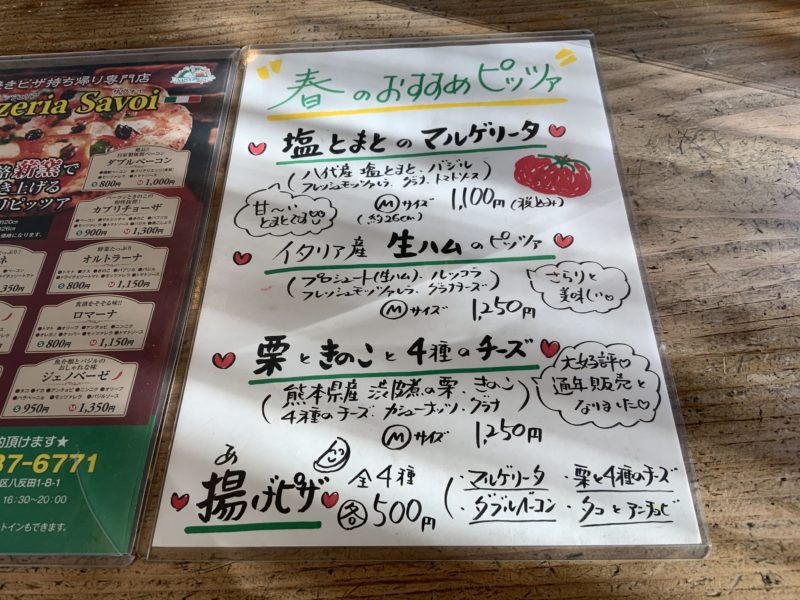 き ピザ持ち帰り専門店
zeria Savoi
自家製燻製ベーコン
ダブルベーコン
S 800円 M 1,000円
カプリチョーザ
S 900円 M 1,300円
野菜たっぷり
オルトラーナ
S 800円 M 1,150円
食欲をそそる味!!
ロマーナ
S 800円 M 1,150円
魚介類とバジルの
おしゃれな味
ジェノベーゼ
S 950円 M 1,350円
約頂けます★
37-6771
区八反田1-8-1
16:30〜20:00
トインもできます。
春のおすすめピッツァ
塩とまとのマルゲリータ
(八代産 塩とまと、バジル
フレッシュモッツァレラ、グラナ、トマトソース)
甘〜い
とまとです
Mサイズ 1,100円(税込み)
(約26cm)
イタリア産 生ハムのピッツァ
(プロシュート(生ハム)、ルッコラ
フレッシュモッツァレラ、グラナチーズ)
さらりと
美味しい
Mサイズ 1,250円
栗ときのこと4種のチーズ
(熊本県産 渋皮煮の栗、きのこ
4種のチーズ、カシューナッツ、グラナ)
大好評♡
通年販売と
なりました♡
Mサイズ 1,250円
あ
揚げピザ 全4種
各500円
(・マルゲリータ ・栗と4種のチーズ
・ダブルベーコン ・タコとアンチョビ)